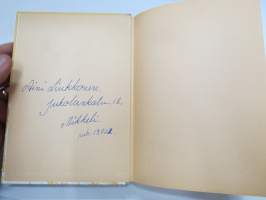 Aini Liukkonen
Jukolankatu 18
Mikkeli